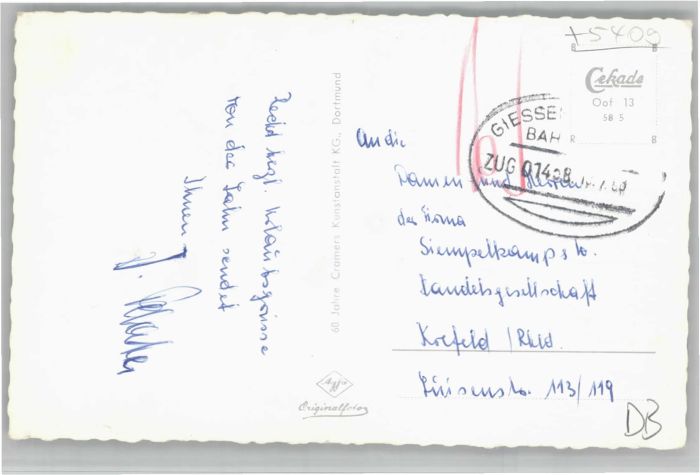 Recht herzl. Urlaubsgrüsse
von der Lahn sendet
Ihnen
60 Jahre Cramers Kunstanstalt KG., Dortmund
Agfa
Originalfoto
+5409
Cekade
Oof 13
58 5
GIESSE
BAH
ZUG 01438
An die
Damen und Herren
der Firma
Siempelkamp
Handelsgesellschaft
Krefeld / Rhld.
Luisenstr. 113/119
DB